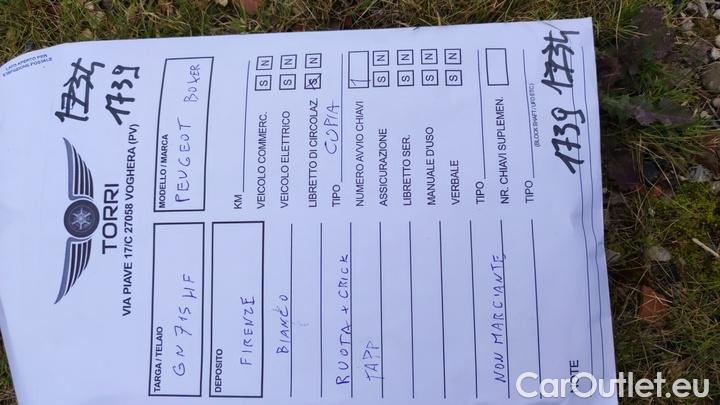 LATO APERTO PER
ISPEZIONE POSTALE
1734
1739
TORRI
VIA PIAVE 17/C 27058 VOGHERA (PV)
TARGA / TELAIO
GN 715 HF
MODELLO / MARCA
PEUGEOT BOXER
DEPOSITO
FIRENZE
KM
BIANCO
VEICOLO COMMERC. S N
VEICOLO ELETTRICO S N
LIBRETTO DI CIRCOLAZ S N
TIPO COPIA
RUOTA + CRICK
NUMERO AVVIO CHIAVI 1
TAPP
ASSICURAZIONE S N
LIBRETTO SER. S N
MANUALE D'USO S N
VERBALE S N
TIPO
NR. CHIAVI SUPLEMEN.
NON MARCIANTE
TIPO
(BLOCK SHAFT / UFO ETC)
1739 1734
CarOutlet.eu